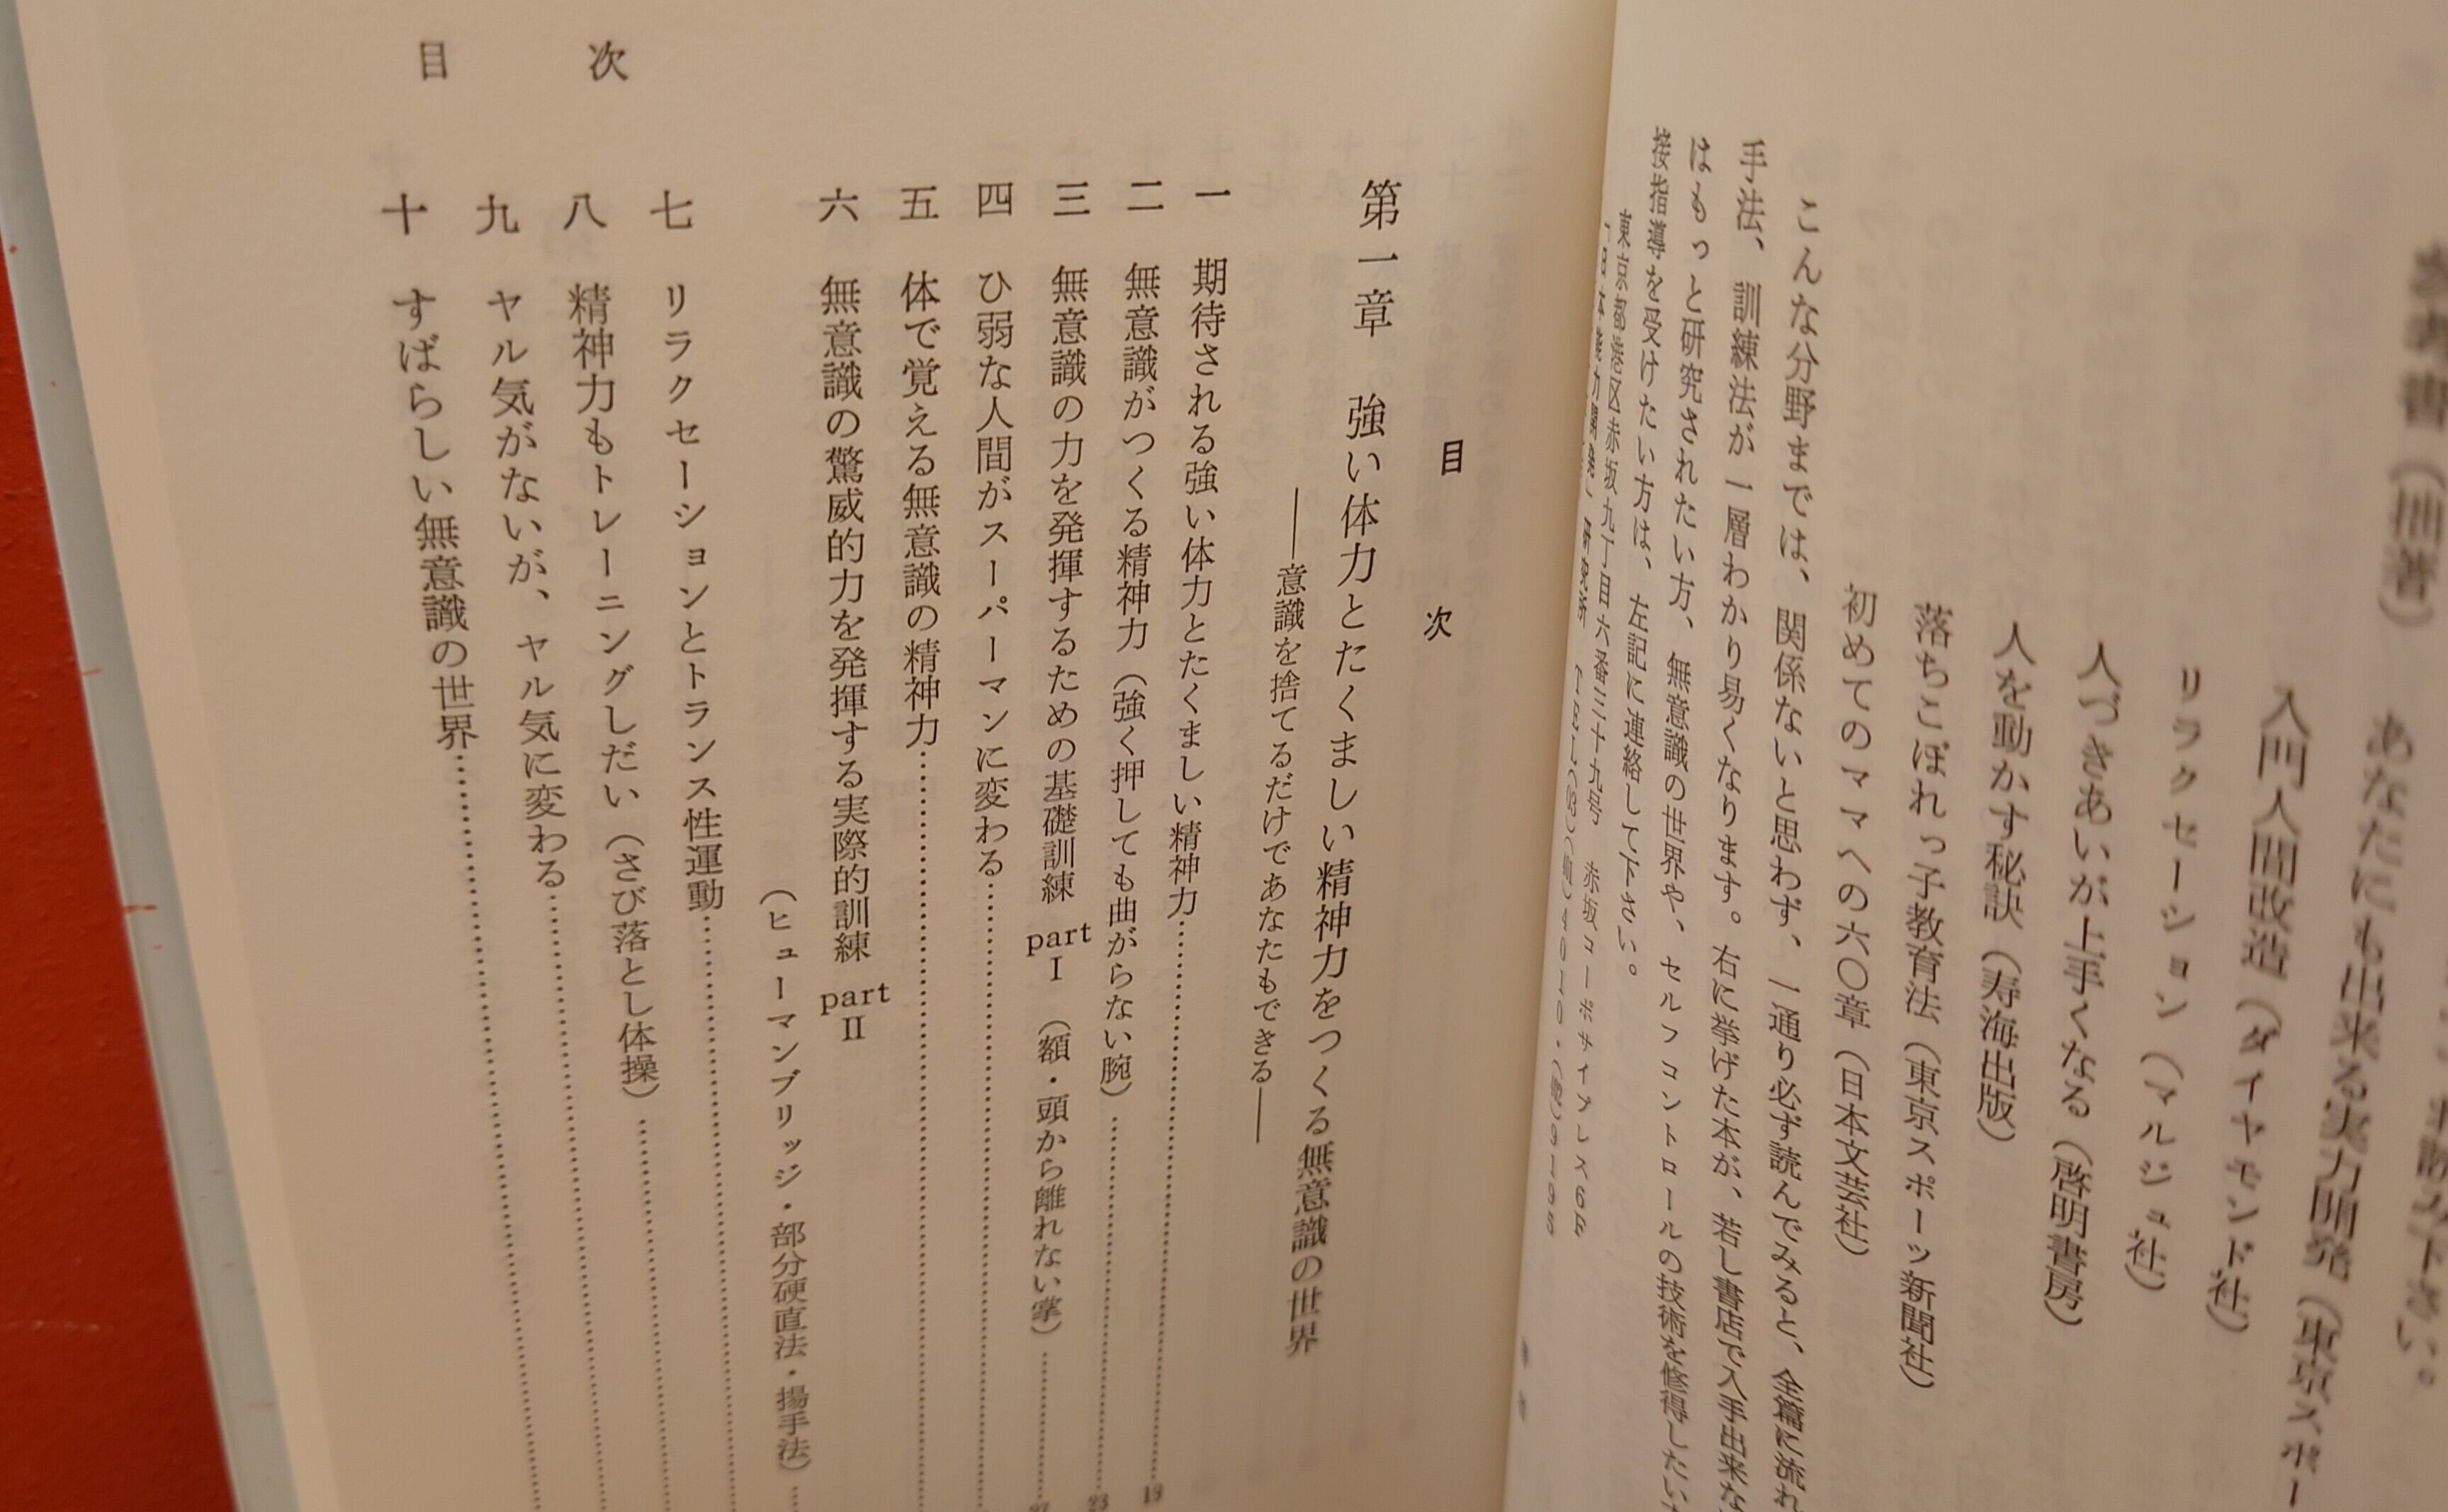 参考書(田著)
あなたにも出来る実力開発(東京スポー
入門人間改造(ダイヤモンド社)
リラクセーション(マルジュ社)
人づきあいが上手くなる(啓明書房)
人を動かす秘訣(寿海出版)
落ちこぼれっ子教育法(東京スポーツ新聞社)
初めてのママへの六〇章(日本文芸社)
こんな分野までは、関係ないと思わず、一通り必ず読んでみると、全篇に流れ
手法、訓練法が一層わかり易くなります。右に挙げた本が、若し書店で入手出来な
はもっと研究されたい方、無意識の世界や、セルフコントロールの技術を修得したい
接指導を受けたい方は、左記に連絡して下さい。
東京都港区赤坂九丁目六番三十九号 赤坂コーポサイプレス
目 次
第一章 強い体力とたくましい精神力をつくる無意識の世界
――意識を捨てるだけであなたもできる――
一 期待される強い体力とたくましい精神力……………19
二 無意識がつくる精神力(強く押しても曲がらない腕)……………23
三 無意識の力を発揮するための基礎訓練 part I (額・頭から離れない掌)……………27
四 ひ弱な人間がスーパーマンに変わる……………
五 体で覚える無意識の精神力……………
六 無意識の驚威的力を発揮する実際的訓練 part II
(ヒューマンブリッジ・部分硬直法・揚手法)……
七 リラクセーションとトランス性運動……………
八 精神力もトレーニングしだい(さび落とし体操)……………
九 ヤル気がないが、ヤル気に変わる……………
十 すばらしい無意識の世界……………
目 次